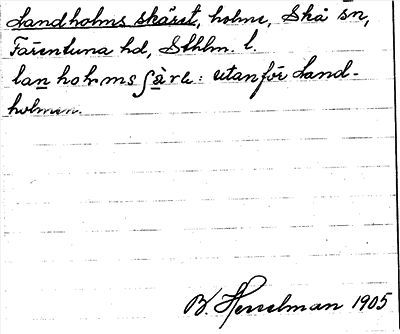 Landholms skäret, holme, Skå sn,
Färentuna hd, Sthlm. l.
lanholmsʃäre: utanför Land-
holmen.
B. Hesselman 1905